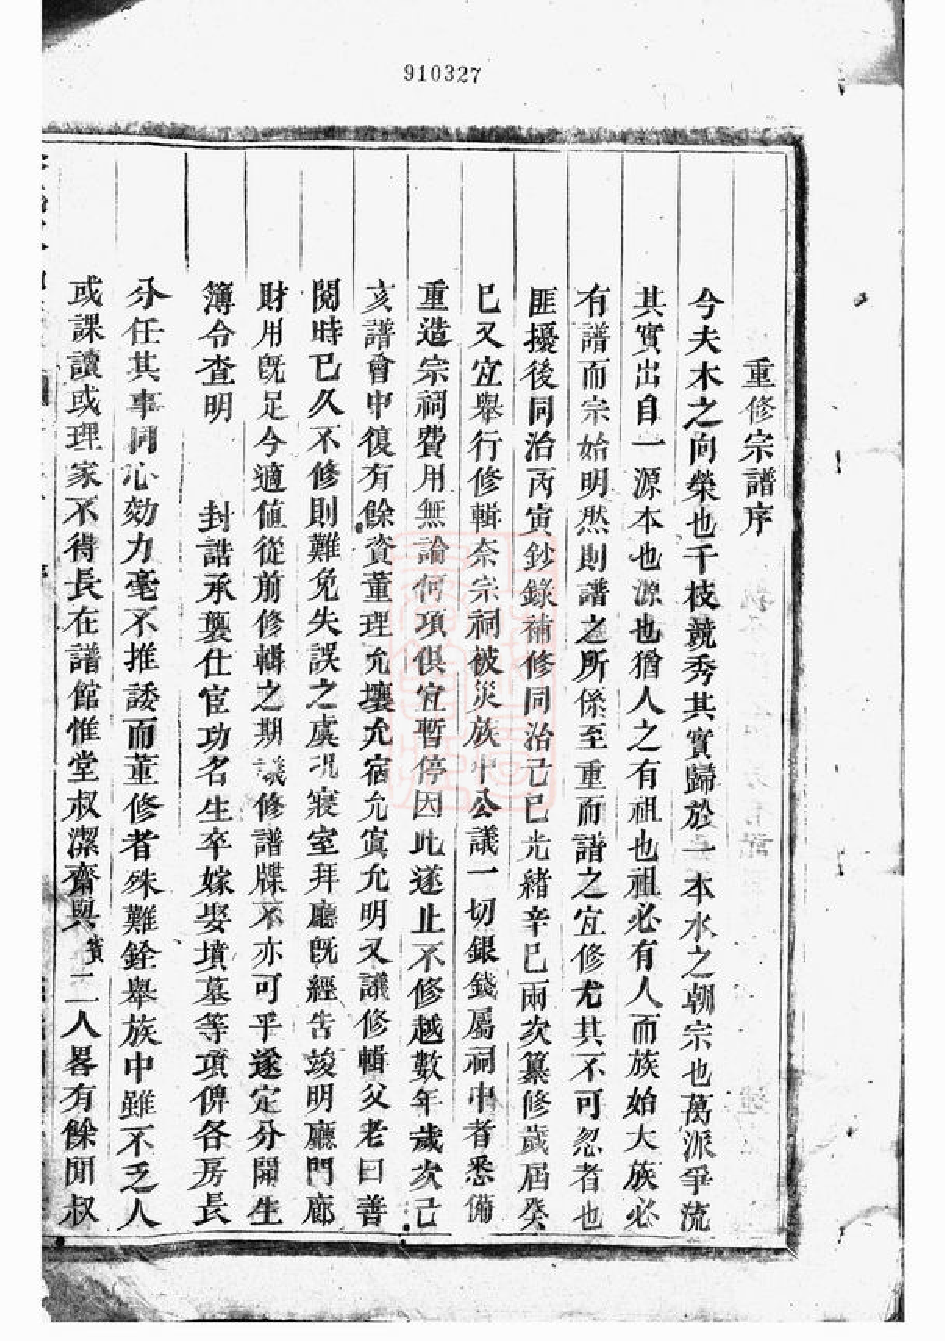 910327
重修宗譜序
今夫木之向榮也千枝競秀其實歸於一本水之朝宗也萬派爭流
其實出自一源本也源也猶人之有祖也祖必有人而族始大族必
有譜而宗始明然則譜之所係至重而譜之宜修尤其不可忽者也
匪擾後同治丙寅鈔錄補修同治己巳光緒辛巳兩次纂修歲屆癸
巳又宜舉行修輯奈宗祠被災族中公議一切銀錢屬祠中者悉備
重造宗祠費用無論何項俱宜暫停因此遂止不修越數年歲次己
亥譜會中復有餘資董理允壤允宿允寅允明又議修輯父老曰善
閱時已久不修則難免失誤之虞況寢室拜廳既經告竣明廳門廊
財用既足今適值從前修輯之期議修譜牒不亦可乎遂定分開生
簿令查明　封誥承襲仕宦功名生卒嫁娶墳墓等項俾各房長
分任其事同心効力毫不推諉而董修者殊難銓舉族中雖不乏人
或課讀或理家不得長在譜館惟堂叔潔齋與二人畧有餘閒叔